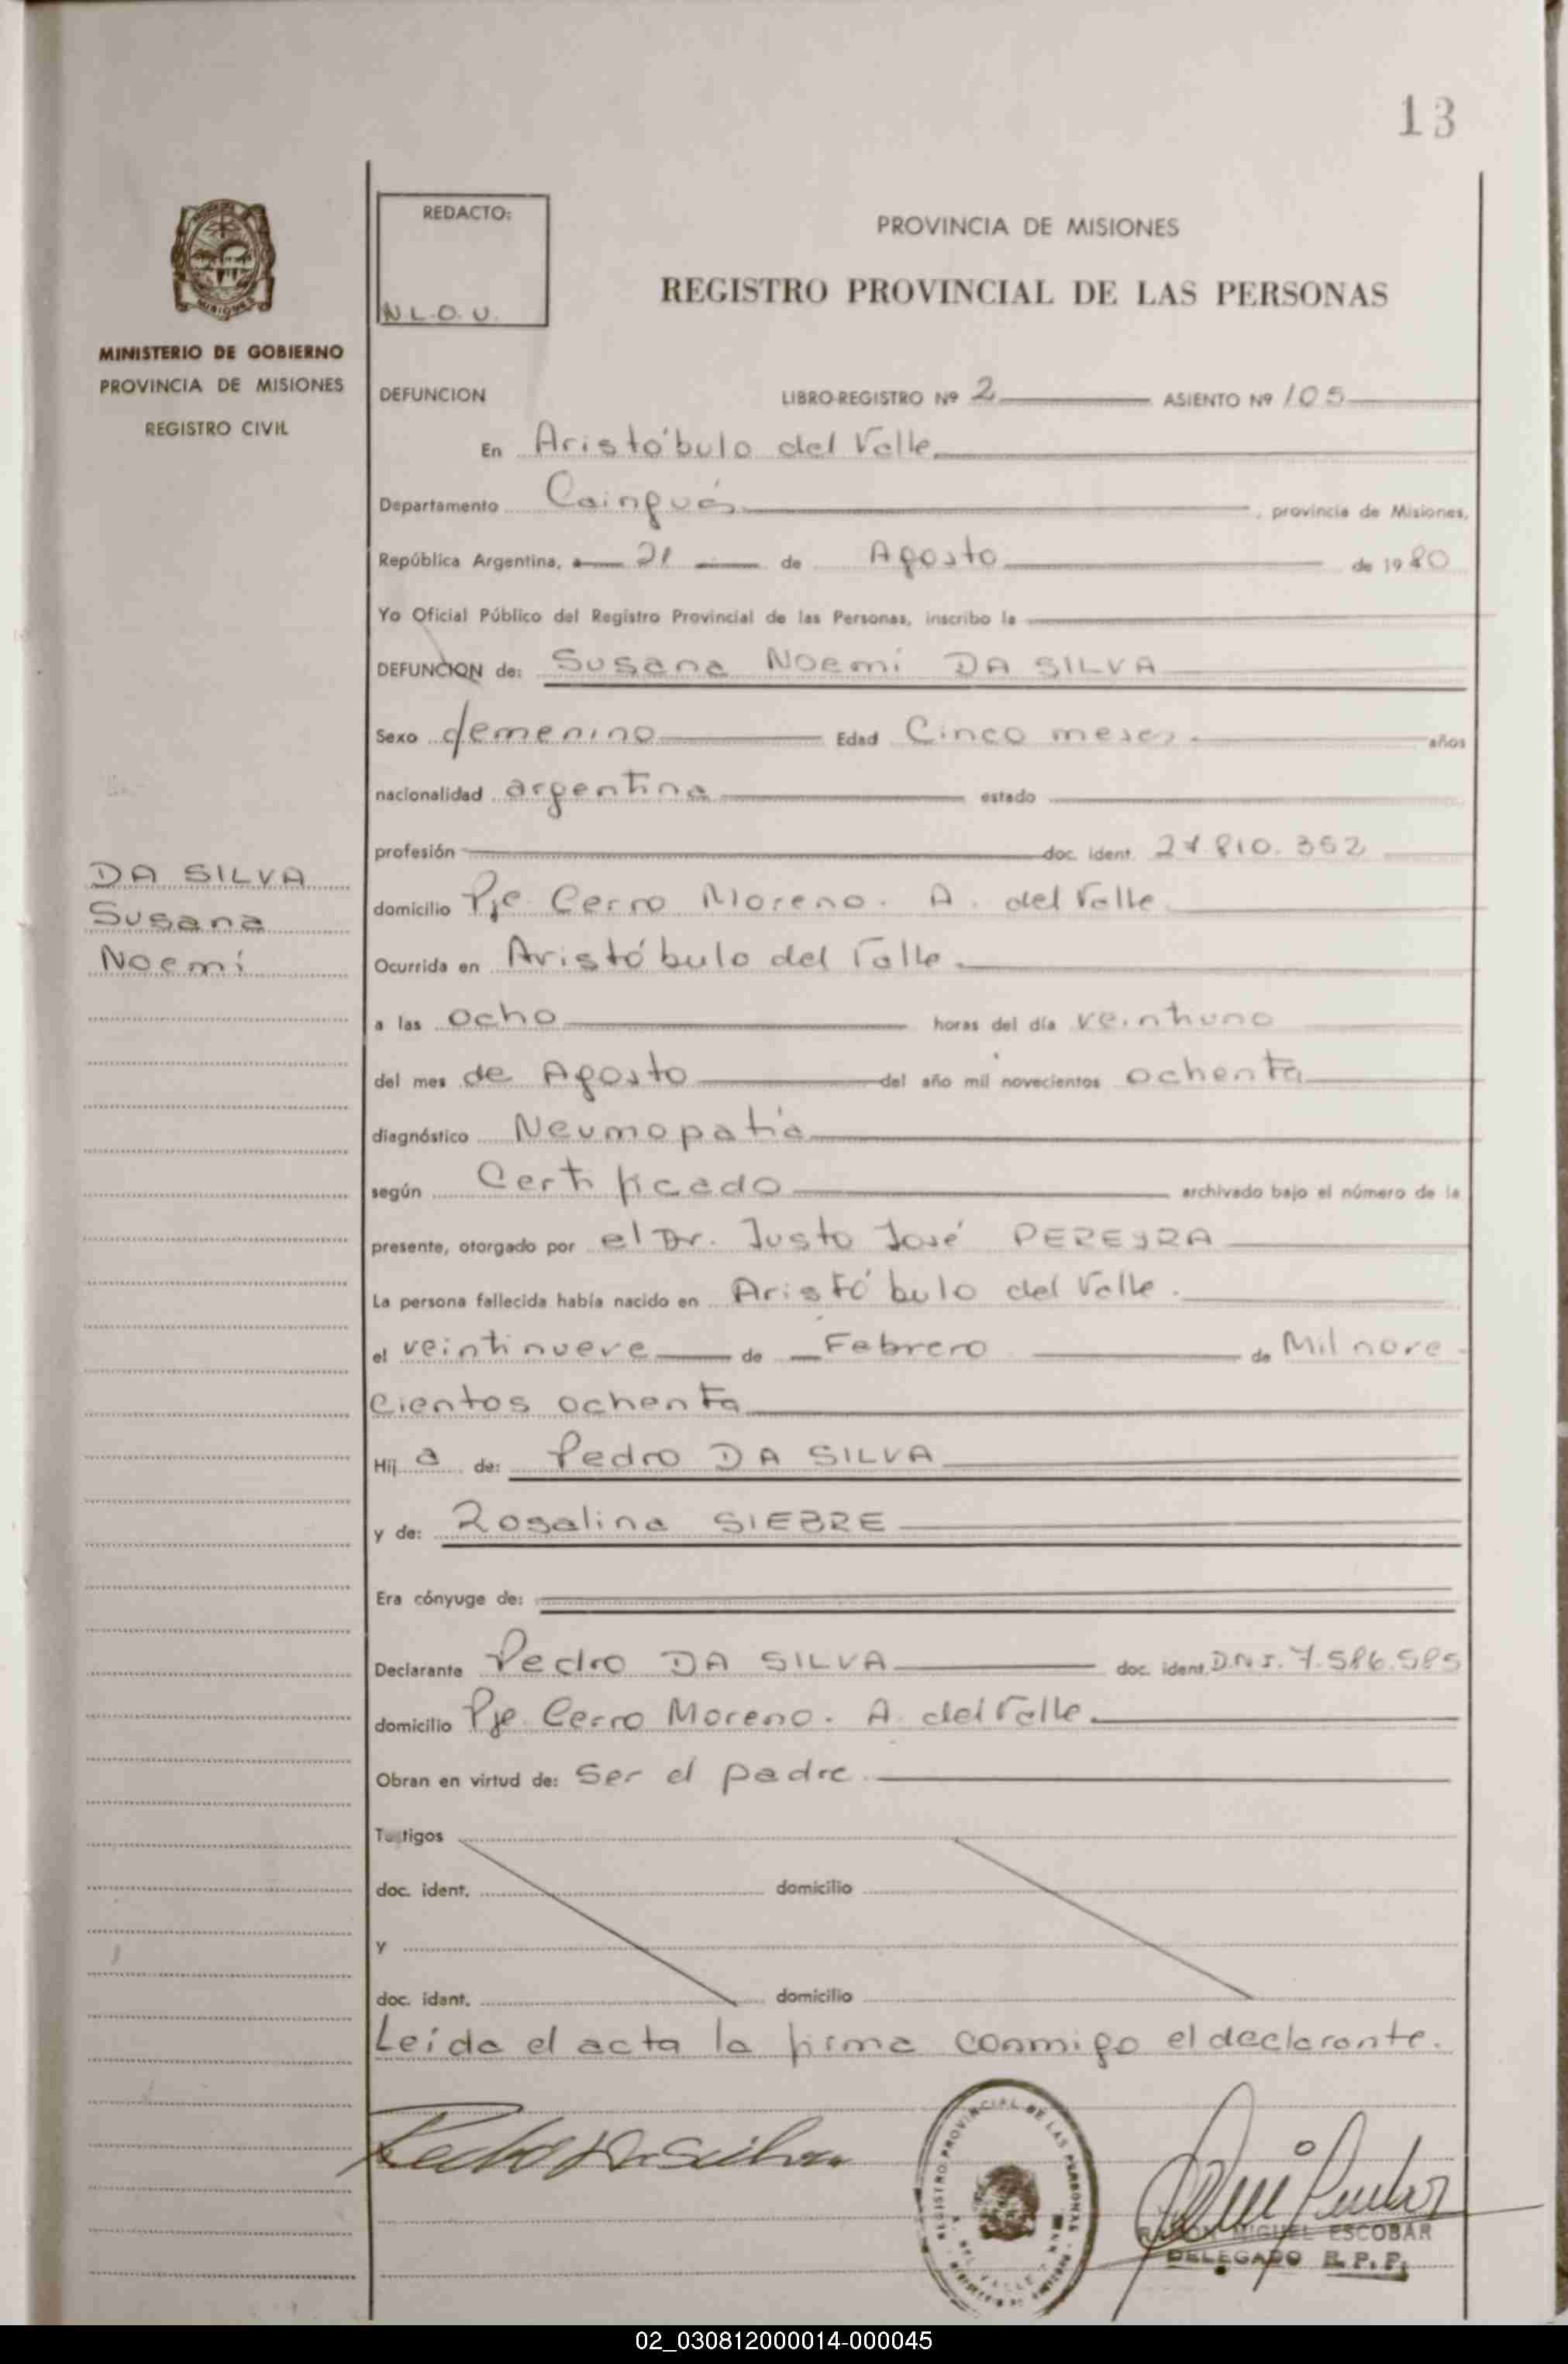 13
REDACTO:
N.L.O.U.
PROVINCIA DE MISIONES
REGISTRO PROVINCIAL DE LAS PERSONAS
MINISTERIO DE GOBIERNO
PROVINCIA DE MISIONES
REGISTRO CIVIL
DEFUNCION LIBRO-REGISTRO Nº 2 ASIENTO Nº 105
En Aristóbulo del Valle
Departamento Cainguás, provincia de Misiones,
República Argentina, a 21 de Agosto de 1980
Yo Oficial Público del Registro Provincial de las Personas, inscribo la
DEFUNCION de: Susana Noemí DA SILVA
Sexo femenino Edad Cinco meses. años
nacionalidad argentina estado
profesión doc. ident. 27.810.352
DA SILVA
Susana
Noemí
domicilio Pje Cerro Moreno. A. del Valle
Ocurrida en Aristóbulo del Valle.
a las ocho horas del día veintiuno
del mes de Agosto del año mil novecientos ochenta
diagnóstico Neumopatía
según Certificado archivado bajo el número de la
presente, otorgado por el Dr. Justo José PEREYRA
La persona fallecida había nacido en Aristóbulo del Valle.
el veintinueve de Febrero de Mil nove-
cientos ochenta
Hij a de: Pedro DA SILVA
y de: Rosalina SIEBRE
Era cónyuge de:
Declarante Pedro DA SILVA doc. ident. D.N.I. 7.586.585
domicilio Pje. Cerro Moreno. A. del Valle.
Obran en virtud de: Ser el padre.
Testigos
doc. ident. domicilio
y
doc. idant. domicilio
Leída el acta la firma conmigo el declarante.
REGISTRO PROVINCIAL DE LAS PERSONAS
RAMON MIGUEL ESCOBAR
DELEGADO R.P.P.
02_030812000014-000045